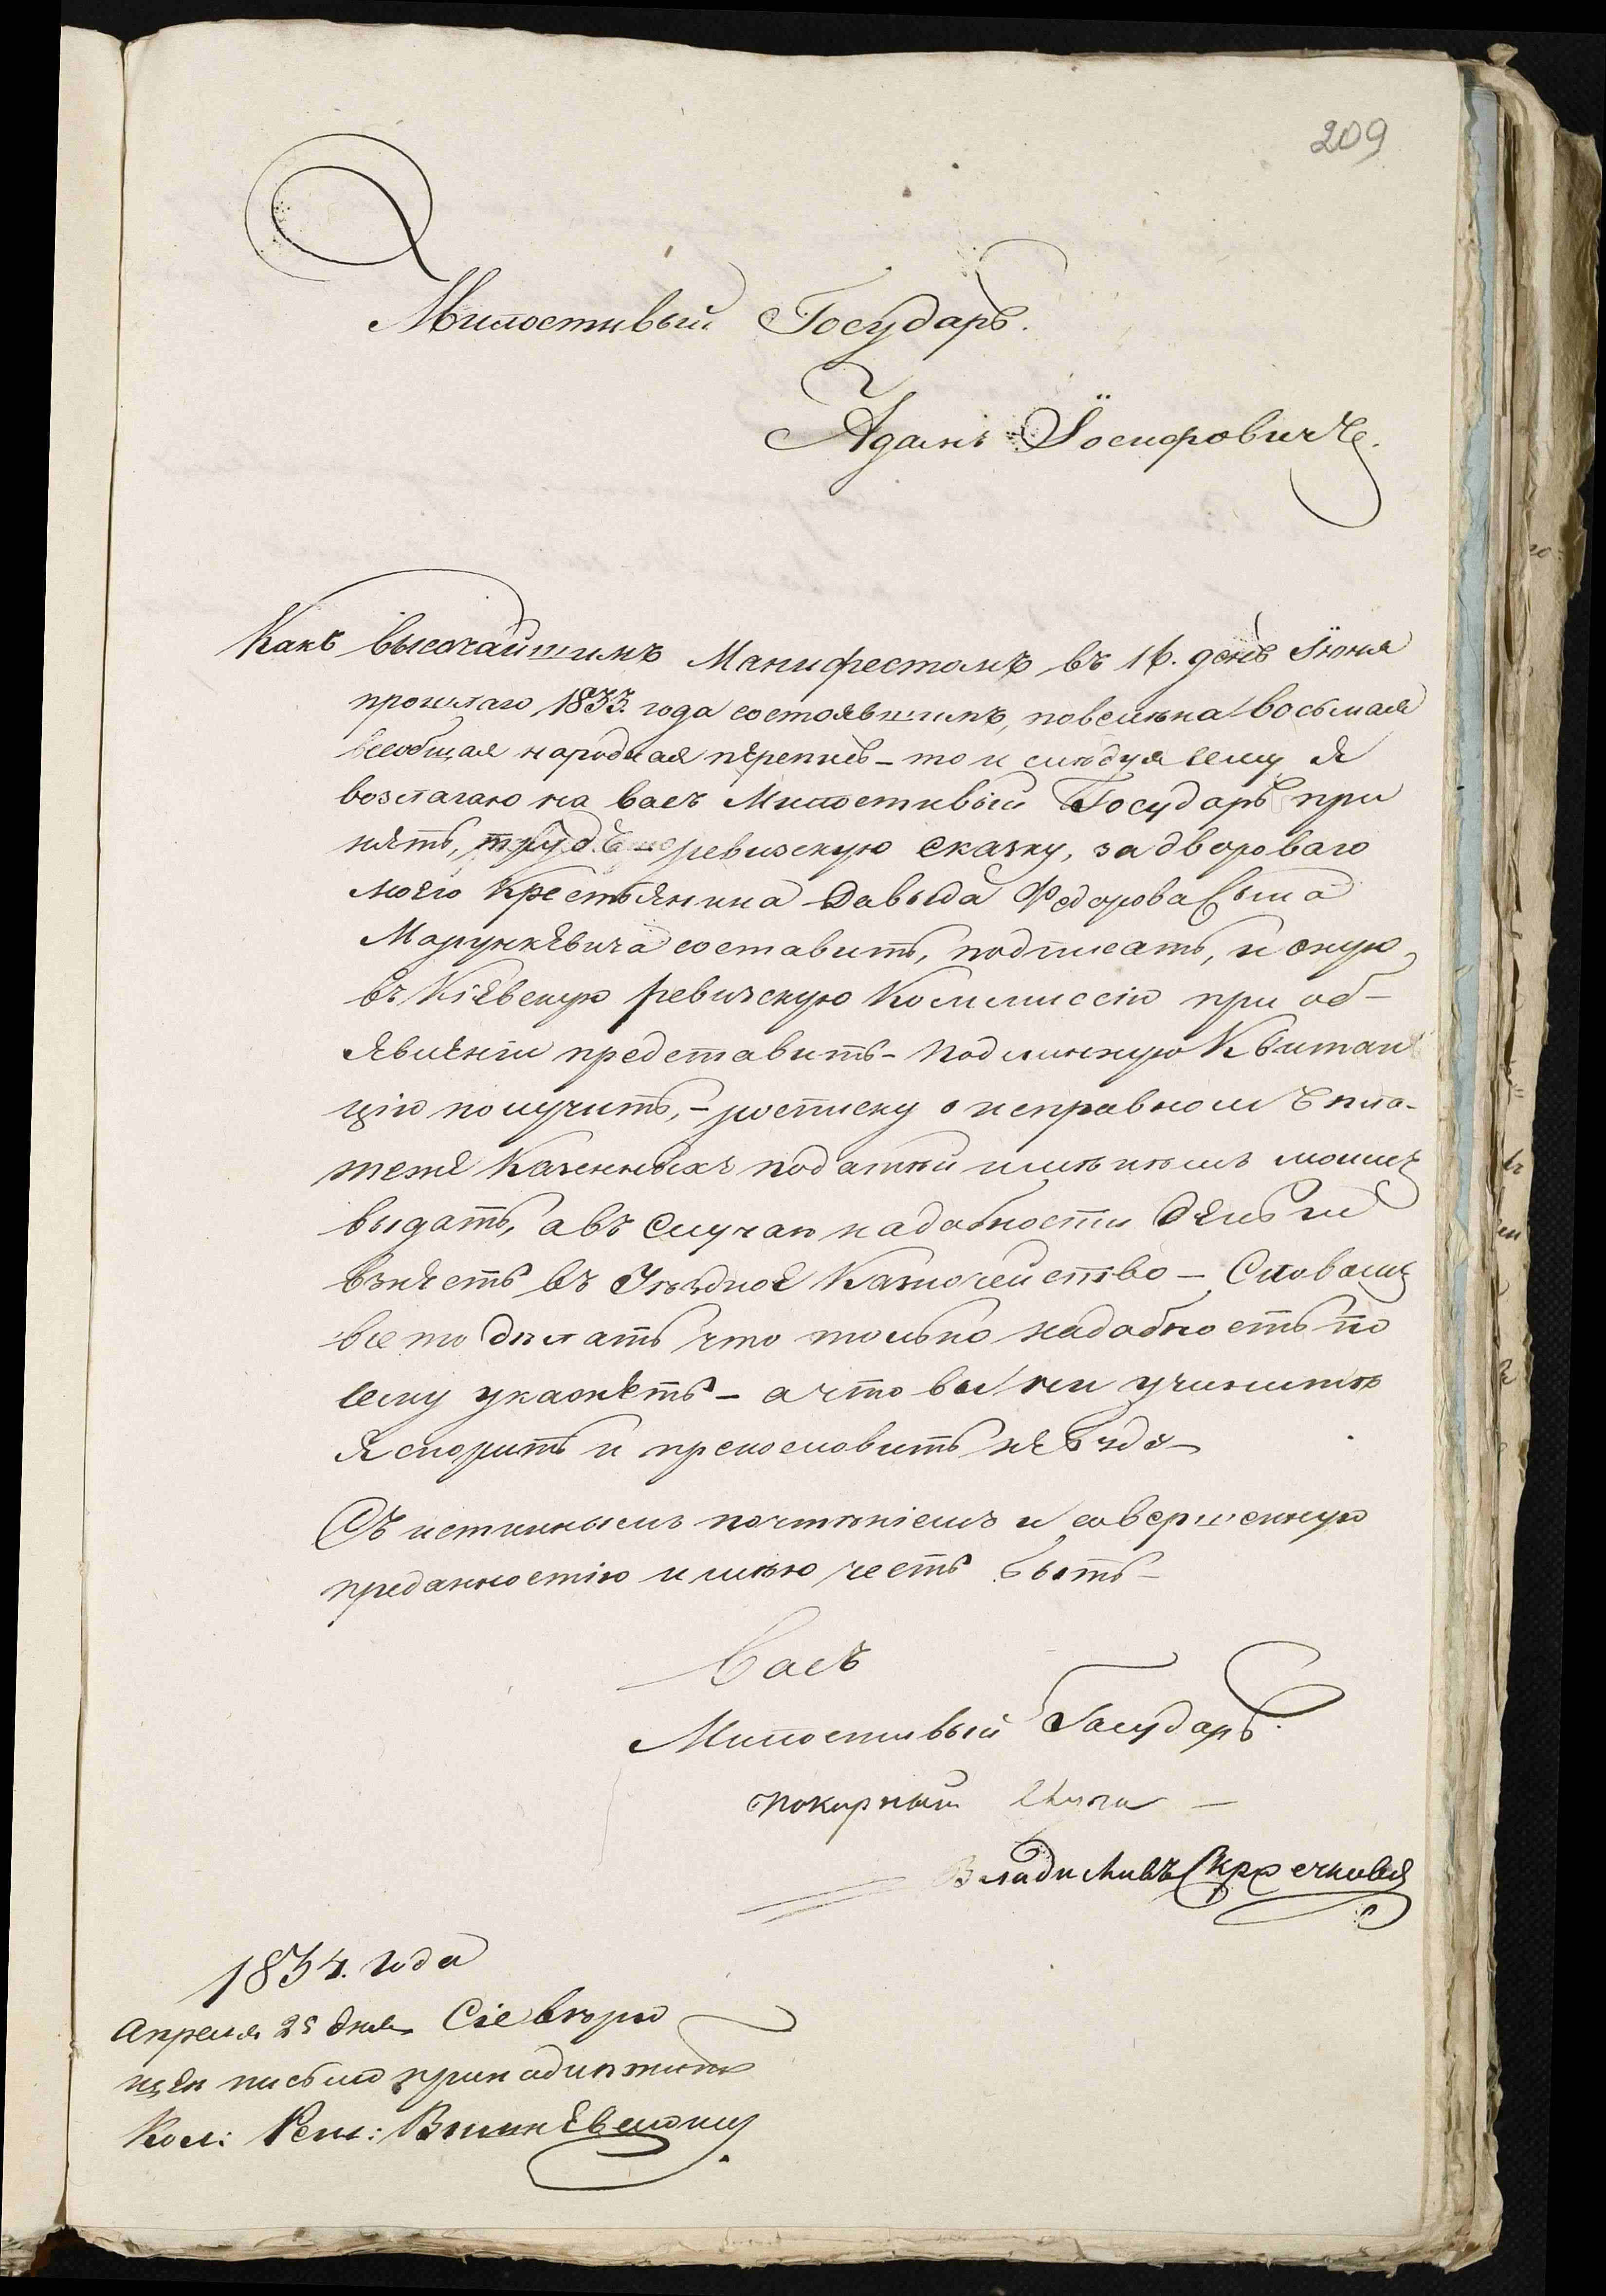 209
Милостивый Государь.
Адамъ Іосифовичъ.
Какъ высочайшимъ Манифестомъ въ 16. день Іюня
прошлаго 1833. года состоявшимъ, повелѣна восьмая
всеобщая народная перепись – то и слѣдуя сему я
возлагаю на васъ Милостивый Государь при
нять, трудъ – ревизскую сказку, за двороваго
моего Крестьянина Давыда Федорова Сына
Марункевича составить, подписать, и оную
въ Кіевскую ревизскую Коммиссію при об-
явленіи представить – подлинную Квитан
цію получить, – росписку о исправномъ пла-
теже Казенныхъ податѣй имѣніемъ моимъ
выдать, а въ случаѣ надобности деньги
взнесть въ Уѣздное Казначейство – Словомъ
все то дѣлать что только надобность по
сему укажетъ – а что вы ни учинитѣ
я спорить и прекословить не буду –
Съ истиннымъ почтѣніемъ и совершенную
преданностію имѣю честь быть –
Васъ
Милостивый Государь.
покорный слуга –
Владиславъ
1834. года
Апреля 25 дня Сіе вѣрю
щее письмо принадлѣжитъ
Кол: Рег: Вишневскому